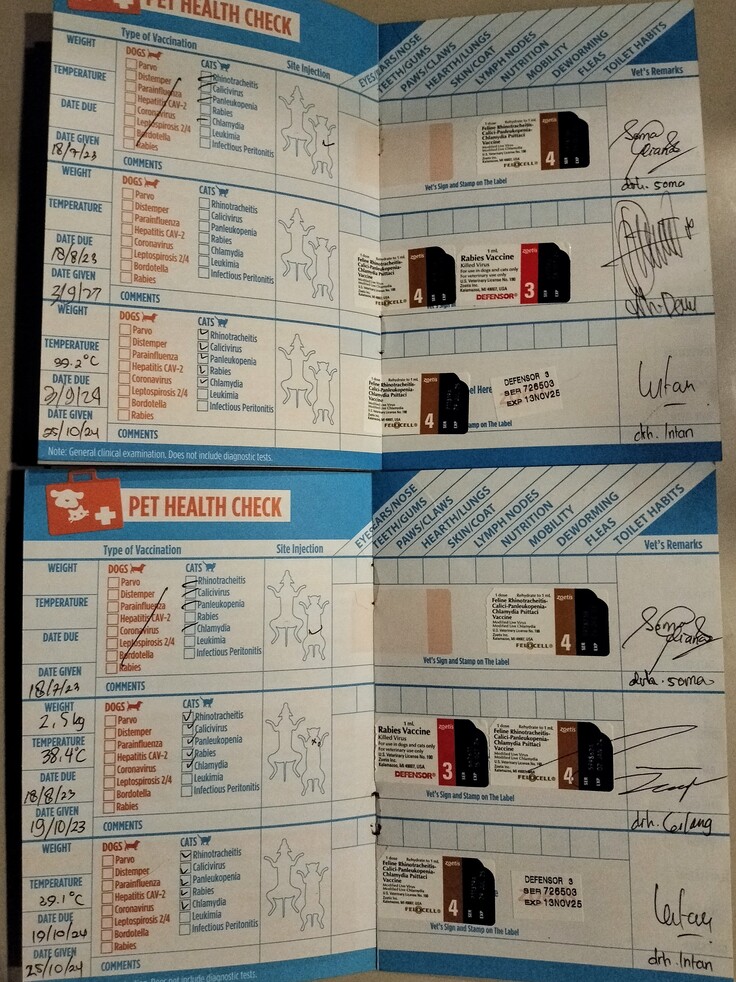 PET HEALTH CHECK
Type of Vaccination
Site Injection
EYES/EARS/NOSE
TEETH/GUMS
PAWS/CLAWS
HEARTH/LUNGS
SKIN/COAT
LYMPH NODES
NUTRITION
MOBILITY
DEWORMING
FLEAS
TOILET HABITS
Vet's Remarks
WEIGHT
TEMPERATURE
DATE DUE
DATE GIVEN
18/7/23
DOGS
Parvo
Distemper
Parainfluenza
Hepatitis CAV-2
Coronavirus
Leptospirosis 2/4
Bordotella
Rabies
CATS
Rhinotracheitis
Calicivirus
Panleukopenia
Rabies
Chlamydia
Leukimia
Infectious Peritonitis
COMMENTS
1 dose Rehydrate to 1 mL
Feline Rhinotracheitis-
Calici-Panleukopenia-
Chlamydia Psittaci
Vaccine
Modified Live Virus
Modified Live Chlamydia
U.S. Veterinary License No. 190
Zoetis Inc.
Kalamazoo, MI 49007, USA
FELOCELL®
zoetis
4
SER
EXP
Vet's Sign and Stamp on The Label
drh. Soma
WEIGHT
TEMPERATURE
DATE DUE
18/8/23
DATE GIVEN
DOGS
Parvo
Distemper
Parainfluenza
Hepatitis CAV-2
Coronavirus
Leptospirosis 2/4
Bordotella
Rabies
CATS
Rhinotracheitis
Calicivirus
Panleukopenia
Rabies
Chlamydia
Leukimia
Infectious Peritonitis
COMMENTS
Feline Rhinotracheitis-
Calici-Panleukopenia-
Chlamydia Psittaci
Vaccine
FELOCELL®
zoetis
4
SER
EXP
1 mL
Rabies Vaccine
Killed Virus
For use in dogs and cats only
For veterinary use only
U.S. Veterinary License No. 190
Zoetis Inc.
Kalamazoo, MI 49007, USA
DEFENSOR®
zoetis
3
SER
EXP
WEIGHT
TEMPERATURE
39.2°C
DATE DUE
DATE GIVEN
25/10/24
DOGS
Parvo
Distemper
Parainfluenza
Hepatitis CAV-2
Coronavirus
Leptospirosis 2/4
Bordotella
Rabies
CATS
Rhinotracheitis
Calicivirus
Panleukopenia
Rabies
Chlamydia
Leukimia
Infectious Peritonitis
COMMENTS
Feline Rhinotracheitis-
Calici-Panleukopenia-
Chlamydia Psittaci
Vaccine
FELOCELL®
zoetis
4
SER
EXP
DEFENSOR 3
SER 726503
EXP 13NOV25
Stamp on The Label
Intan
drh. Intan
Note: General clinical examination. Does not include diagnostic tests.
PET HEALTH CHECK
Type of Vaccination
Site Injection
EYES/EARS/NOSE
TEETH/GUMS
PAWS/CLAWS
HEARTH/LUNGS
SKIN/COAT
LYMPH NODES
NUTRITION
MOBILITY
DEWORMING
FLEAS
TOILET HABITS
Vet's Remarks
WEIGHT
TEMPERATURE
DATE DUE
DATE GIVEN
18/7/23
DOGS
Parvo
Distemper
Parainfluenza
Hepatitis CAV-2
Coronavirus
Leptospirosis 2/4
Bordotella
Rabies
CATS
Rhinotracheitis
Calicivirus
Panleukopenia
Rabies
Chlamydia
Leukimia
Infectious Peritonitis
COMMENTS
1 dose Rehydrate to 1 mL
Feline Rhinotracheitis-
Calici-Panleukopenia-
Chlamydia Psittaci
Vaccine
Modified Live Virus
Modified Live Chlamydia
U.S. Veterinary License No. 190
Zoetis Inc.
Kalamazoo, MI 49007, USA
FELOCELL®
zoetis
4
SER
EXP
Vet's Sign and Stamp on The Label
drh. Soma
WEIGHT
2,5kg
TEMPERATURE
38.4°C
DATE DUE
18/8/23
DATE GIVEN
19/10/23
DOGS
Parvo
Distemper
Parainfluenza
Hepatitis CAV-2
Coronavirus
Leptospirosis 2/4
Bordotella
Rabies
CATS
Rhinotracheitis
Calicivirus
Panleukopenia
Rabies
Chlamydia
Leukimia
Infectious Peritonitis
COMMENTS
1 mL
Rabies Vaccine
Killed Virus
For use in dogs and cats only
For veterinary use only
U.S. Veterinary License No. 190
Zoetis Inc.
Kalamazoo, MI 49007, USA
DEFENSOR®
zoetis
3
SER
EXP
1 dose Rehydrate to 1 mL
Feline Rhinotracheitis-
Calici-Panleukopenia-
Chlamydia Psittaci
Vaccine
Modified Live Virus
Modified Live Chlamydia
U.S. Veterinary License No. 190
Zoetis Inc.
Kalamazoo, MI 49007, USA
FELOCELL®
zoetis
4
SER
EXP
Vet's Sign and Stamp on The Label
drh. Gilang
WEIGHT
TEMPERATURE
39.1°C
DATE DUE
19/10/24
DATE GIVEN
25/10/24
DOGS
Parvo
Distemper
Parainfluenza
Hepatitis CAV-2
Coronavirus
Leptospirosis 2/4
Bordotella
Rabies
CATS
Rhinotracheitis
Calicivirus
Panleukopenia
Rabies
Chlamydia
Leukimia
Infectious Peritonitis
COMMENTS
1 dose Rehydrate to 1 mL
Feline Rhinotracheitis-
Calici-Panleukopenia-
Chlamydia Psittaci
Vaccine
FELOCELL®
zoetis
4
SER
EXP
DEFENSOR 3
SER 726503
EXP 13NOV25
Vet's Sign and Stamp on The Label
Intan
drh. Intan
Does not include diagnostic tests.